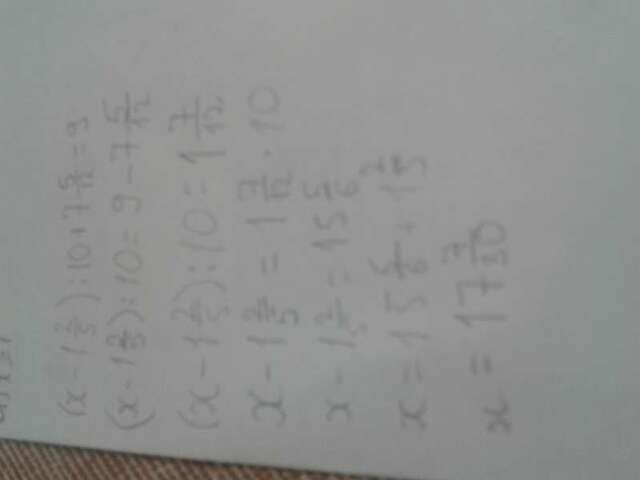 (x - 1 2/5) : 10 + 7 5/12 = 9
(x - 1 2/5) : 10 = 9 - 7 5/12
(x - 1 2/5) : 10 = 1 7/12
x - 1 2/5 = 1 7/12 · 10
x - 1 2/5 = 15 5/6
x = 15 5/6 + 1 2/5
x = 17 7/30